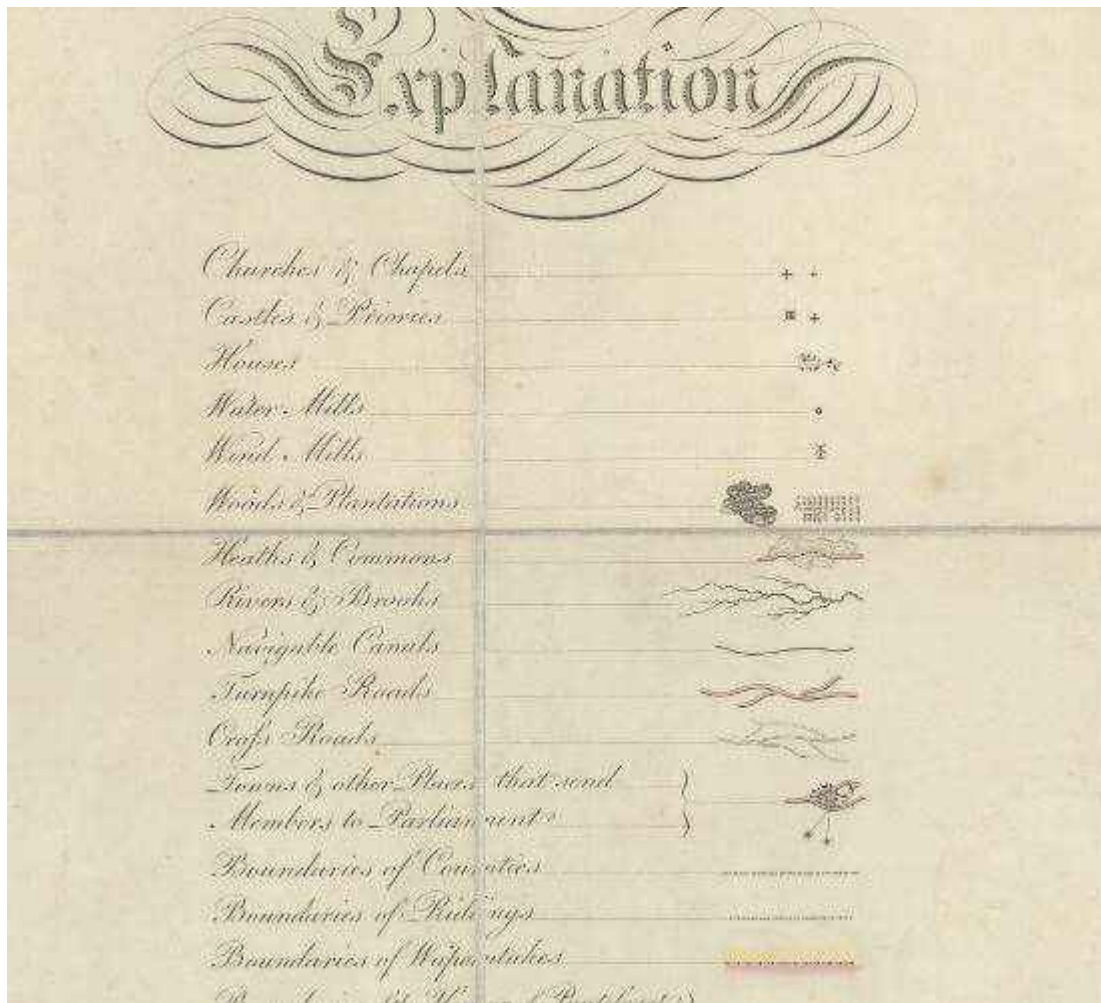 Explanation
Churches & Chapels
Castles & Priories
Houses
Water Mills
Wind Mills
Woods & Plantations
Heaths & Commons
Rivers & Brooks
Navigable Canals
Turnpike Roads
Croſs Roads
Towns & other Places that send
Members to Parliament
Boundaries of Counties
Boundaries of Ridings
Boundaries of Wapentakes